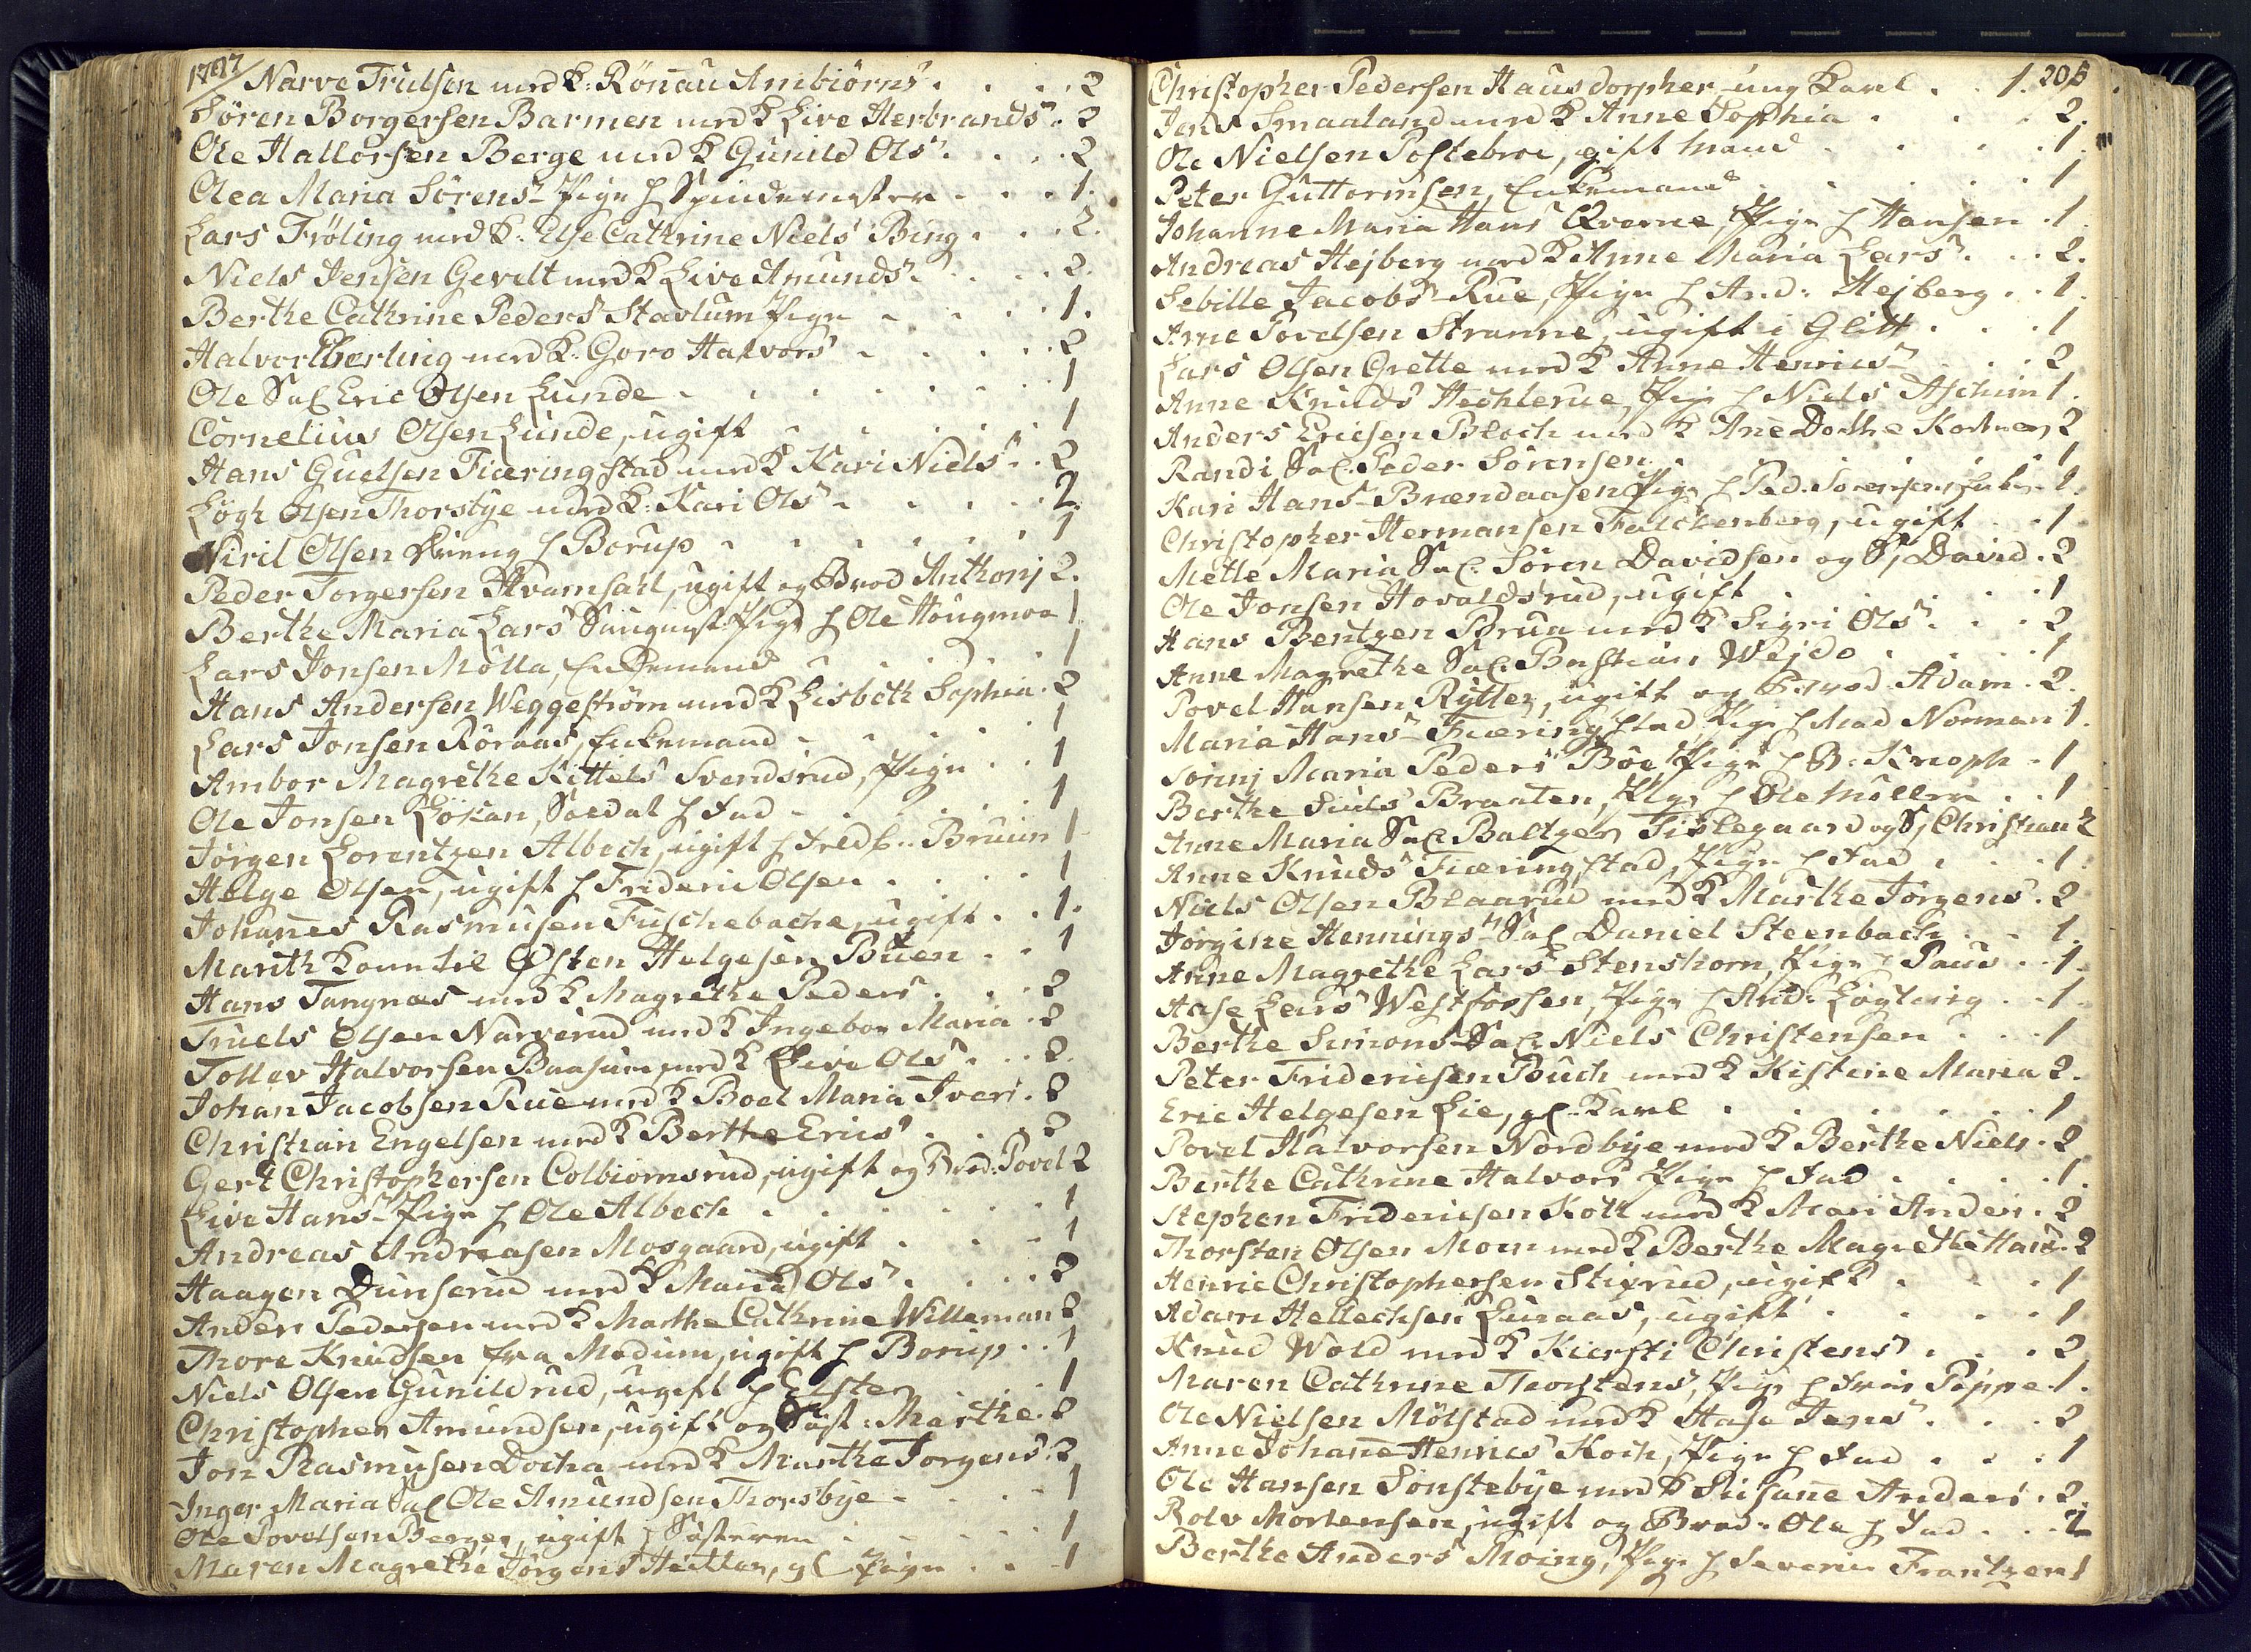 1797
Narve Trulsen med K: Rönau Ambiörns . . . . 2
Sören Borgersen Barmen med K Live Herbrands . 2
Ole Hallorsen Berge med K Gunild Ols . . . . 2
Olea Maria Sörens Pige h Spindemester . . . 1.
Lars Fröling med K: Else Cathrine Niels Bing . . . 2.
Niels Jensen Gevelt med K Live Amunds . . . . 2.
Berthe Cathrine Peders Stavlum Pige . . . . 1.
Halvor Eberling med K: Goro Halvors . . . . . 2
Ole Sal Eric Olsen Lunde . . . . . . 1
Cornelius Olsen Lunde, ugift . . . . . 1
Hans Guelsen Fiæringstad med K Kari Niels . . 2
Olsen Thorstye med K: Kari Ols . . . . . 2
Niril Olsen h Borup . . . . . . 1
Peder Torgersen Hvamsahl, ugift og Brod Anthonj 2.
Berthe Maria Lars Pige h Ole Hougmoe 1
Lars Jonsen Mölla, Enkemand . . . . . 1
Hans Andersen Weggeström med K Lisbeth Sophia . 2
Lars Jonsen Röraas, Enkemand . . . . . 1
Ambor Magrethe Kittels Svendsrud, Pige . . 1
Ole Jonsen Lökan, Soldat h Fad . . . . . 1
Jörgen Lorentzen Albech, ugift h Bruun 1
Helge Olsen, ugift h Frideric Olsen . . . . 1
Johanes Rasmusen Fuschebache, ugift . . 1.
Marith Östen Helgesen Buen . . 1
Hans Tangnæs med K Magrethe Peders . . . 2
Truels Olsen Narverud med K Ingebor Maria . 2
Tollev Halvorsen med K Live Ols . . . 2.
Johan Jacobsen Rue med K Boel Maria Ivers . 2
Christian Engelsen med K Berthe Erics . . . 2
Gert Christophersen Colbiornsrud, ugift og Brod: Povel 2
Live Hans Pige h Ole Albech . . . . . . 1
Andreas Andreasen Mosgaard, ugift . . . 1
Haagen Dunserud med K Maria Ols . . . . 2
Anders Pedersen med K Marthe Cathrine Willeman 2
Thore Knudsen fra Modum, ugift h Borup . . 1
Niels Olsen Gunildrud, ugift h Elster . . . 1
Christopher Amundsen, ugift og Söst: Marthe . 2
Jon Rasmusen Docka med K Marthe Jorgens . 2
Inger Maria Sal Ole Amundsen Thorsbye . . . . 1
Ole Povelsen Berger, ugift h Sösteren . . . . 1
Maren Magrethe Jörgens Hütter, gl Pige . . . 1
205
Christopher Pedersen Hausdorpher, ung Karl . . 1.
Jens Smaaland med K Anne Sophia . . . . 2.
Ole Nielsen Postebroe, gift Mand . . . . . 1
Peter Guttormsen, Enkemand . . . . . . 1
Johanne Maria Hans Qverne, Pige h Hansen . 1
Andreas Hejberg med K Anne Maria Lars . . . 2.
Sebille Jacobs Rue, Pige h And: Hejberg . . 1
Arne Povelsen Stranne, ugift i Glitt . . . . 1
Lars Olsen Grette med K Anne Henrics . . . 2
Anne Knuds Hechlerue, Pige h Niels Aschim 1.
Anders Ericsen Bloch med K Ane Dothe Kortnes 2
Randi Sal. Peder Sörensen . . . . . . 1
Kari Hans Brændaasen Pige h Ped: Sörensens Enke . 1.
Christopher Hermansen Falckenberg, ugift . . 1
Mette Maria Sal. Sören Davidsen og Sj David . 2
Ole Jonsen Hovaldsrud, ugift . . . . . . 1
Hans Bentzen Brua med K Sigri Ols . . . 2
Anne Magrethe Sal. Bastian Wejdo . . . . 1
Povel Hansen Rytter, ugift og Brod Adam . 2.
Maria Hans Fiæringstad, Pige h Mad Norman 1.
Maria Peders Böe, Pige h B: Knoph . 1
Berthe Siuls Braaten, Pige h Ole Möllern . . 1
Anne Maria Sal. Baltzer Fislegaard og Sj Christian 2
Anne Knuds Fiæringstad, Pige h Fad . . . . 1.
Niels Olsen Blaarud med K Marthe Jörgens . 2
Jörgine Hennings Sal Daniel Steenbach . . . 1.
Anne Magrethe Lars Stenshorn, Pige h Paus . . 1.
Aase Lars Westfossen, Pige h And: Lögting . . 1.
Berthe Simons Sal. Niels Christensen . . . 1
Peter Fridericsen Buch med K Kistine Maria 2.
Eric Helgesen Lie, gl. Karl . . . . . . . 1
Povel Halvorsen Nordbye med K Berthe Niels . 2
Berthe Cathrine Halvors Pige h Fad . . . . . 1.
Stephen Fridericsen Koth med K Mari Anders . 2
Thorsten Olsen Moen med K Berthe Magrethe Hans . 2
Henric Christophersen Stixrud, ugift . . . . 1
Adam Hellechsen Lunaas, ugift . . . . . 1
Knud Wold med K Kiersti Christens . . . 2
Maren Cathrine Thorstens, Pige h Iver Poppe . 1.
Ole Nielsen Mölstad med K Aase Jens . . . 2
Anne Johane Henrics Koch, Pige h Fad . . . 1
Ole Hansen Sonstebye med K Susane Anders . 2.
Rolv Mortensen, ugift og Brod: Ole h Fad . . . 2
Berthe Anders Moing, Pige h Severin Frantzen 1